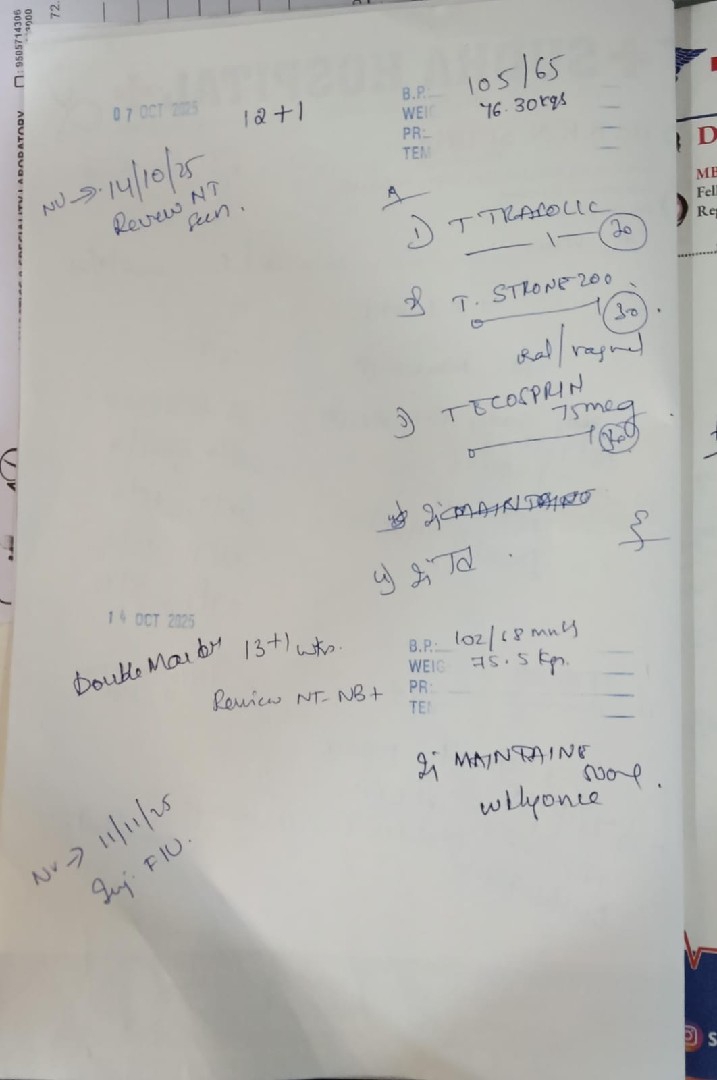 : 9505714306
72.
07 OCT 2025
12+1
B.P.: 105/65
WEI 76.30kgs
PR:
TEM
NV → 14/10/25
Review NT
Scan.
1) T TRAFOLIC
1 30
T. STRONE 200
30
oral/vaginal
3) T ECOSPRIN
75mcg
4) Inj Td
14 OCT 2025
Double Marker 13+1 wks.
B.P.: 102/68 mmHg
WEIG 75.5 Kgs.
Review NT- NB+
PR:
TE
Inj MAINTAINE
500mg
wkly once
NV → 11/11/25
Inj. FLU.
D
Fell
Re